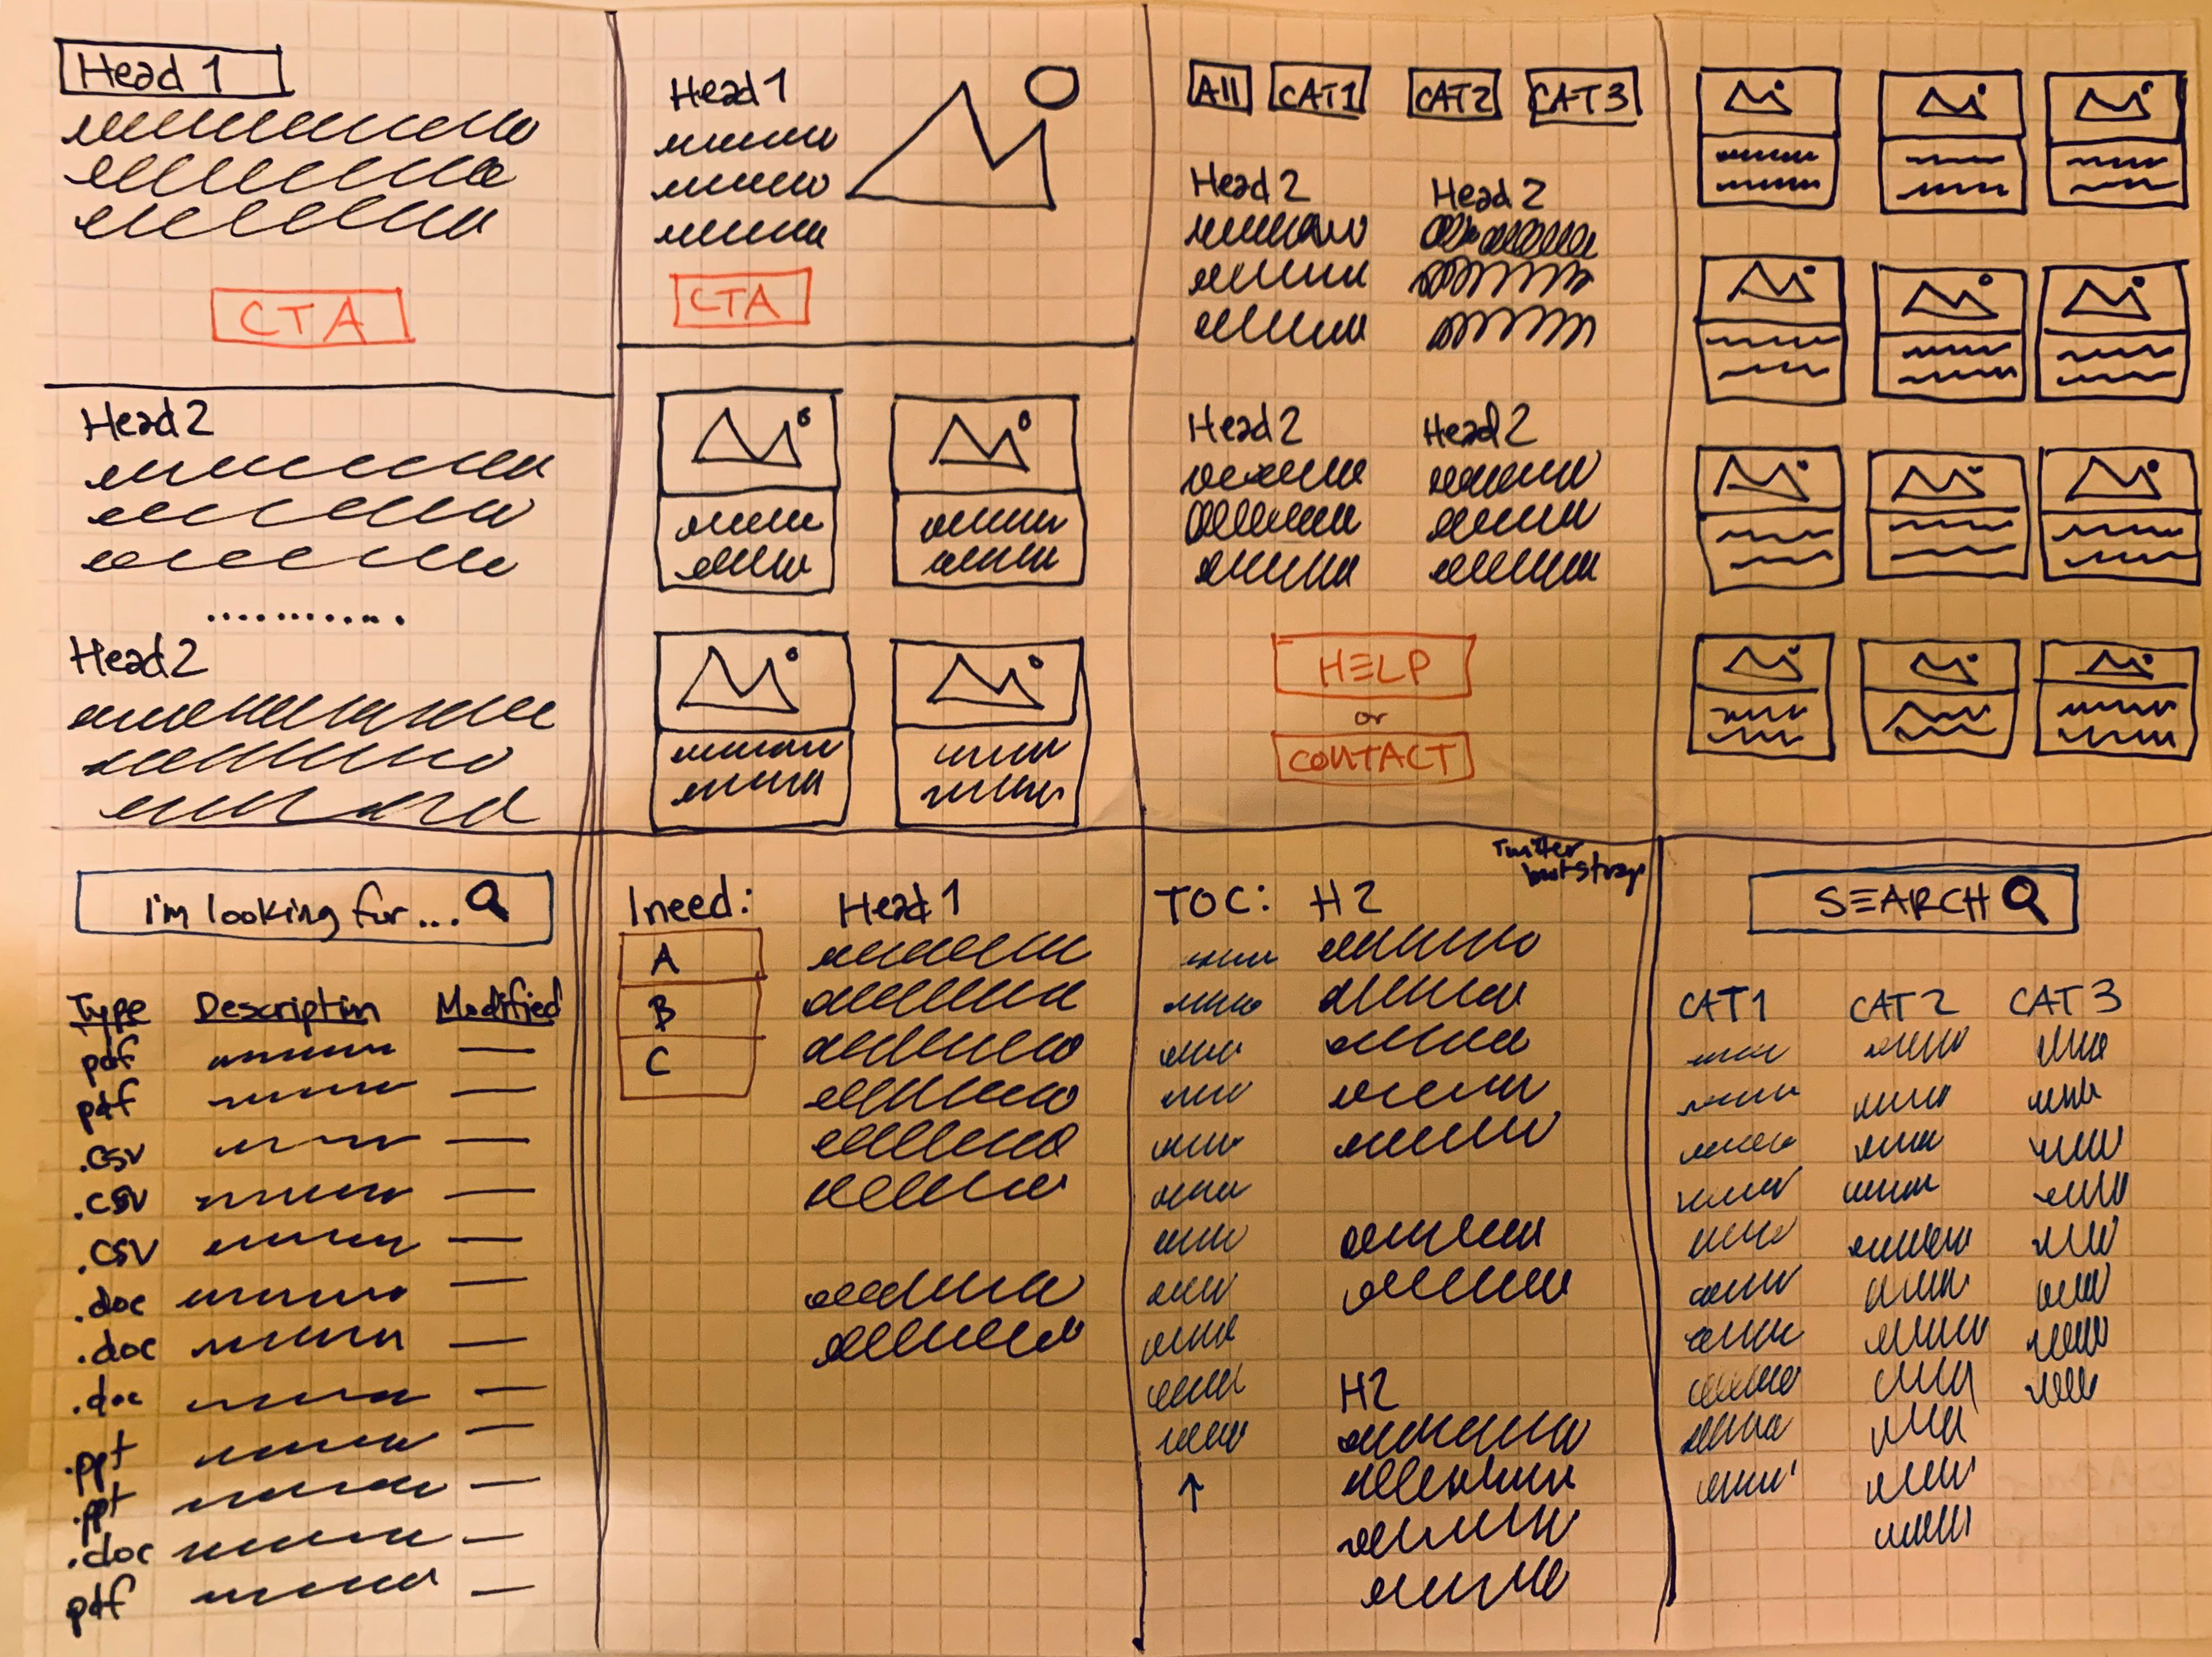 Head 1
CTA
Head 2
............
Head 2
Head 1
CTA
All CAT1 CAT2 CAT3
Head 2 Head 2
Head 2 Head 2
HELP
or
CONTACT
I'm looking for...
Type Description Modified
pdf
pdf
.csv
.csv
.csv
.doc
.doc
.doc
.ppt
.ppt
.doc
pdf
I need: Head 1
A
B
C
Twitter
bootstrap
TOC: H2
H2
↑
SEARCH
CAT1 CAT2 CAT3